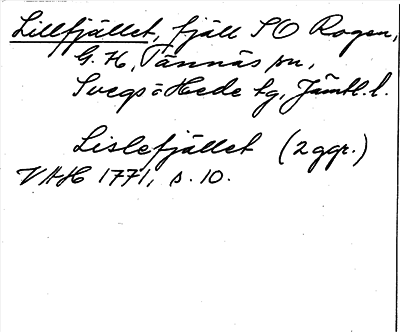 Lillfjället, fjäll SO Rogen,
G. H, Tännäs sn,
Svegs o Hede tg, Jämtl. l.
Lislefjället (2 ggr.)
VAH 1771, s. 10.